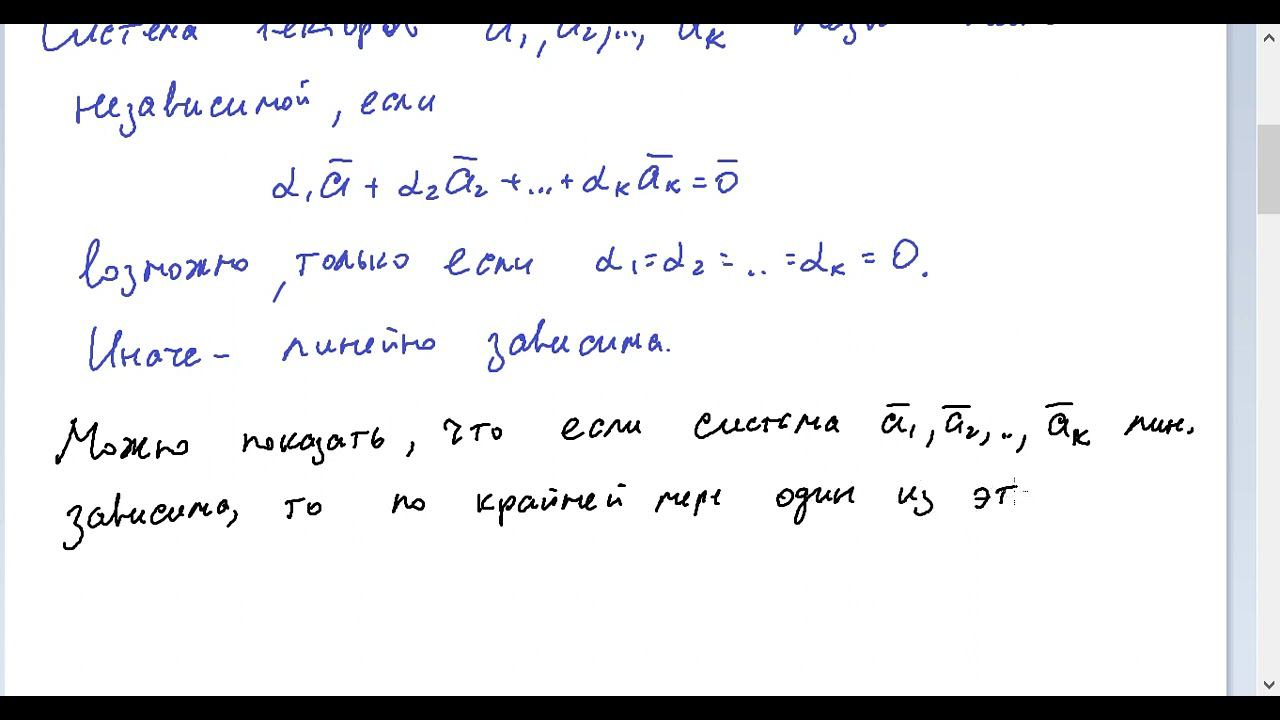 Система векторов a̅₁, a̅₂, ..., a̅ₖ
независимой, если
α₁a̅ + α₂a̅₂ + ... + αₖa̅ₖ = 0̅
возможно, только если α₁ = α₂ = .. = αₖ = 0.
Иначе - линейно зависима.
Можно показать, что если система a̅₁, a̅₂, .., a̅ₖ лин.
зависима, то по крайней мере один из эт